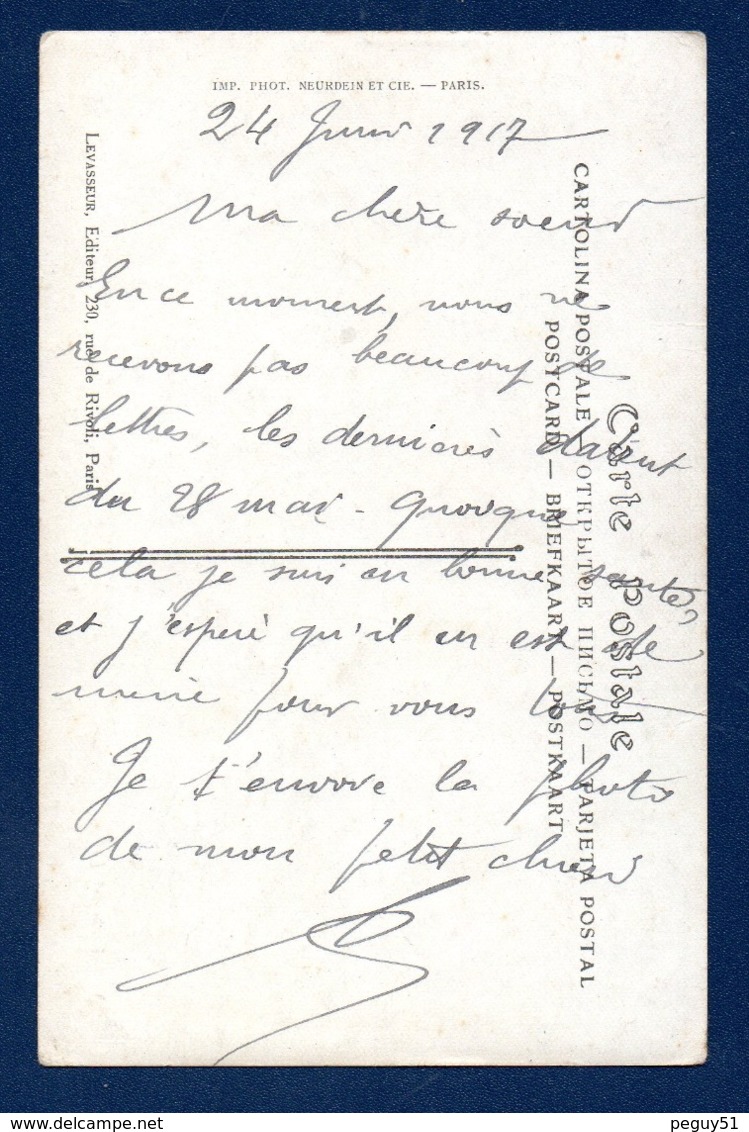 IMP. PHOT. NEURDEIN ET CIE. — PARIS.
24 Juin 1917
Ma chère soeur
En ce moment, nous ne
recevons pas beaucoup de
lettres, les dernières datent
du 28 mai - quoique
cela je suis en bonne santé,
et j'espère qu'il en est de
même pour vous tous
Je t'envoie la photo
de mon petit chien
LEVASSEUR, Editeur, 230, rue de Rivoli, Paris
Carte Postale
CARTOLINA POSTALE — ОТКРЫТОЕ ПИСЬМО — TARJETA POSTAL
POSTCARD — BRIEFKAART — POSTKAART
peguy51